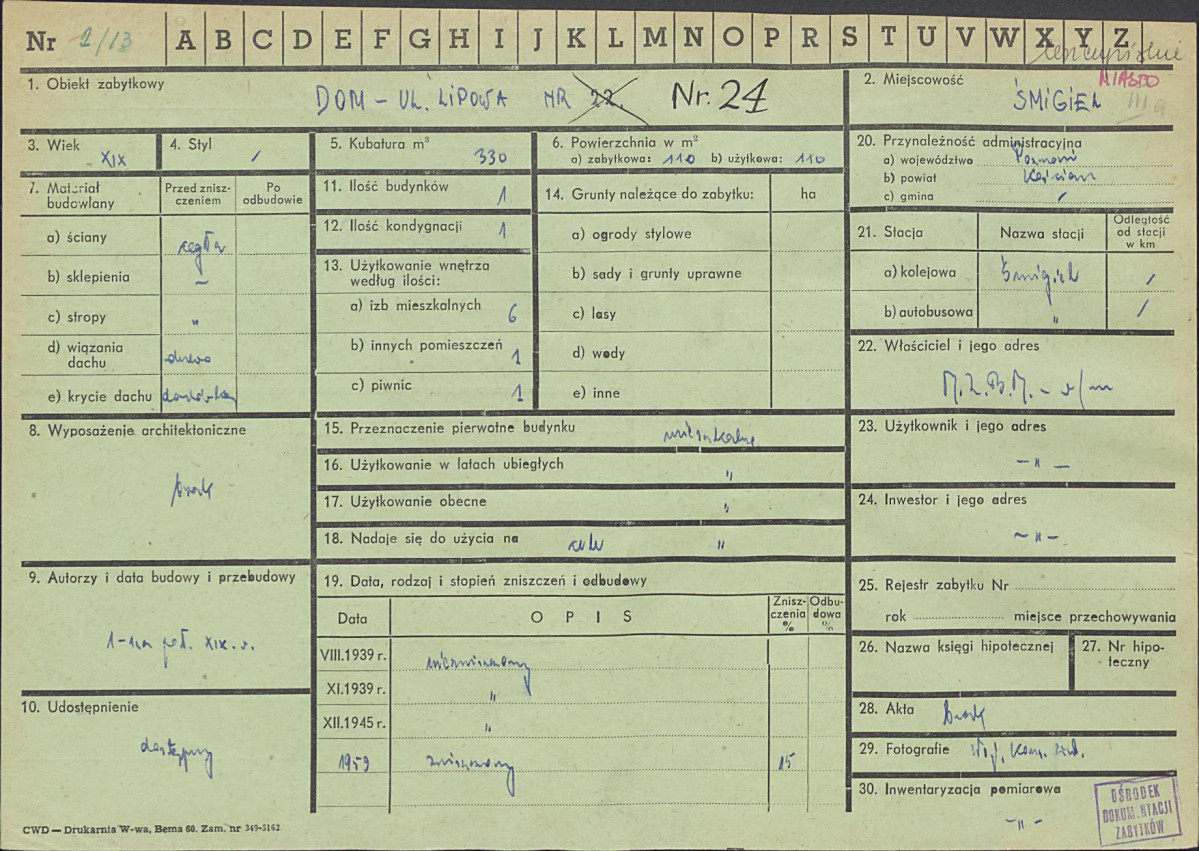 Nr 2/13 A B C D E F G H I J K L M N O P R S T U V W X Y Z
1. Obiekt zabytkowy
DOM – UL. LIPOWA NR 22. Nr. 24
2. Miejscowość MIASTO
ŚMIGIEL III a
3. Wiek
XIX
4. Styl
/
5. Kubatura m³
330
6. Powierzchnia w m²
a) zabytkowa: 110 b) użytkowa: 110
20. Przynależność administracyjna
a) województwo Poznań
b) powiat Kościan
c) gmina /
7. Materiał budowlany
Przed znisz-
czeniem
Po
odbudowie
a) ściany cegła
b) sklepienia –
c) stropy "
d) wiązania
dachu drewno
e) krycie dachu dachówka
11. Ilość budynków 1
12. Ilość kondygnacji 1
13. Użytkowanie wnętrza
według ilości:
a) izb mieszkalnych 6
b) innych pomieszczeń 1
c) piwnic 1
14. Grunty należące do zabytku: ha
a) ogrody stylowe
b) sady i grunty uprawne
c) lasy
d) wody
e) inne
21. Stacja Nazwa stacji
Odległość
od stacji
w km
a) kolejowa Śmigiel /
b) autobusowa " /
22. Właściciel i jego adres
M.Z.B.M. – w/m
8. Wyposażenie architektoniczne
brak
15. Przeznaczenie pierwotne budynku mieszkalne
16. Użytkowanie w latach ubiegłych "
17. Użytkowanie obecne "
18. Nadaje się do użycia na cele "
23. Użytkownik i jego adres
– " –
24. Inwestor i jego adres
– " –
9. Autorzy i data budowy i przebudowy
1-sza poł. XIX. w.
19. Data, rodzaj i stopień zniszczeń i odbudowy
Data OPIS
Znisz-
czenia
%
Odbu-
dowa
%
VIII.1939 r. niezniszczony
XI.1939 r. "
XII.1945 r. "
1959 zniszczony 15
25. Rejestr zabytku Nr
rok miejsce przechowywania
26. Nazwa księgi hipotecznej
27. Nr hipo-
teczny
10. Udostępnienie
dostępny
28. Akta brak
29. Fotografie Woj. Kons. Zab.
30. Inwentaryzacja pomiarowa
– " –
OŚRODEK
DOKUMENTACJI
ZABYTKÓW
CWD — Drukarnia W-wa, Bema 60. Zam. nr 349-5162